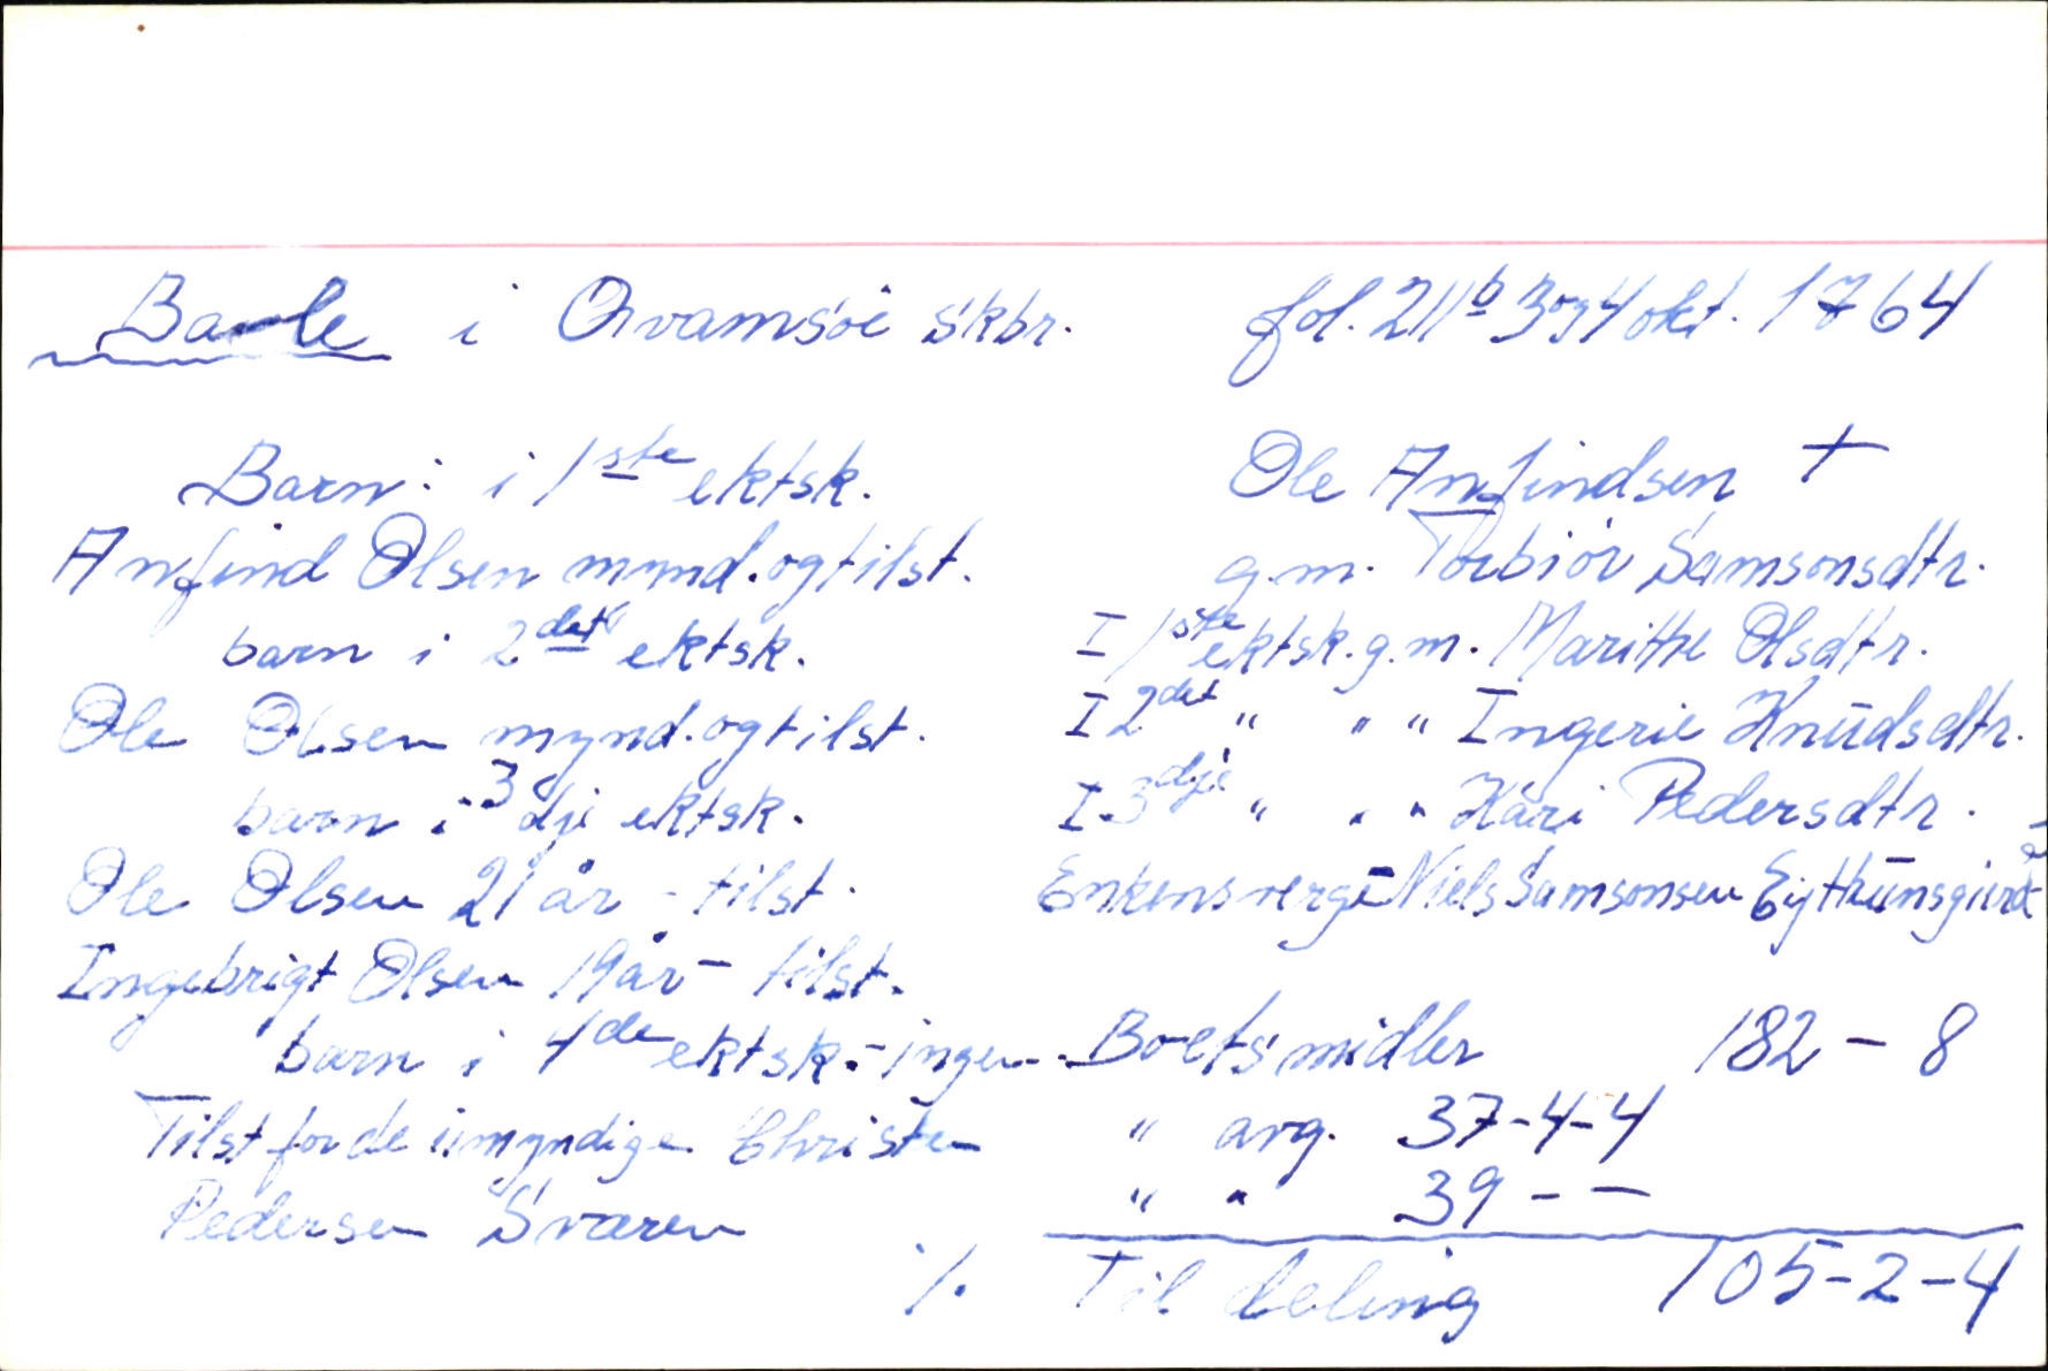 Barle i Qvamsöe skbr. fol. 211b 3og4 okt. 1764
Barn: i 1ste ektsk.
Anfind Olsen mynd. og tilst.
barn i 2det ektsk.
Ole Olsen mynd. og tilst.
barn i 3dje ektsk.
Ole Olsen 21 år - tilst.
Ingebrigt Olsen 19 år - tilst.
barn i 4de ektsk. - ingen
Tilst for de umyndige Christen
Pedersen Sværen
Ole Anfindsen +
g.m. Torbiör Samsonsdtr.
I 1ste ektsk. g.m. Maritte Olsdtr.
I 2det " " " Ingerie Knudsdtr.
I 3dje " " " Kari Pedersdtr.
Enkens verge Niels Samsonsen
Boets midler 182 - 8
" avg. 37-4-4
" " 39 - -
% Til deling 105-2-4